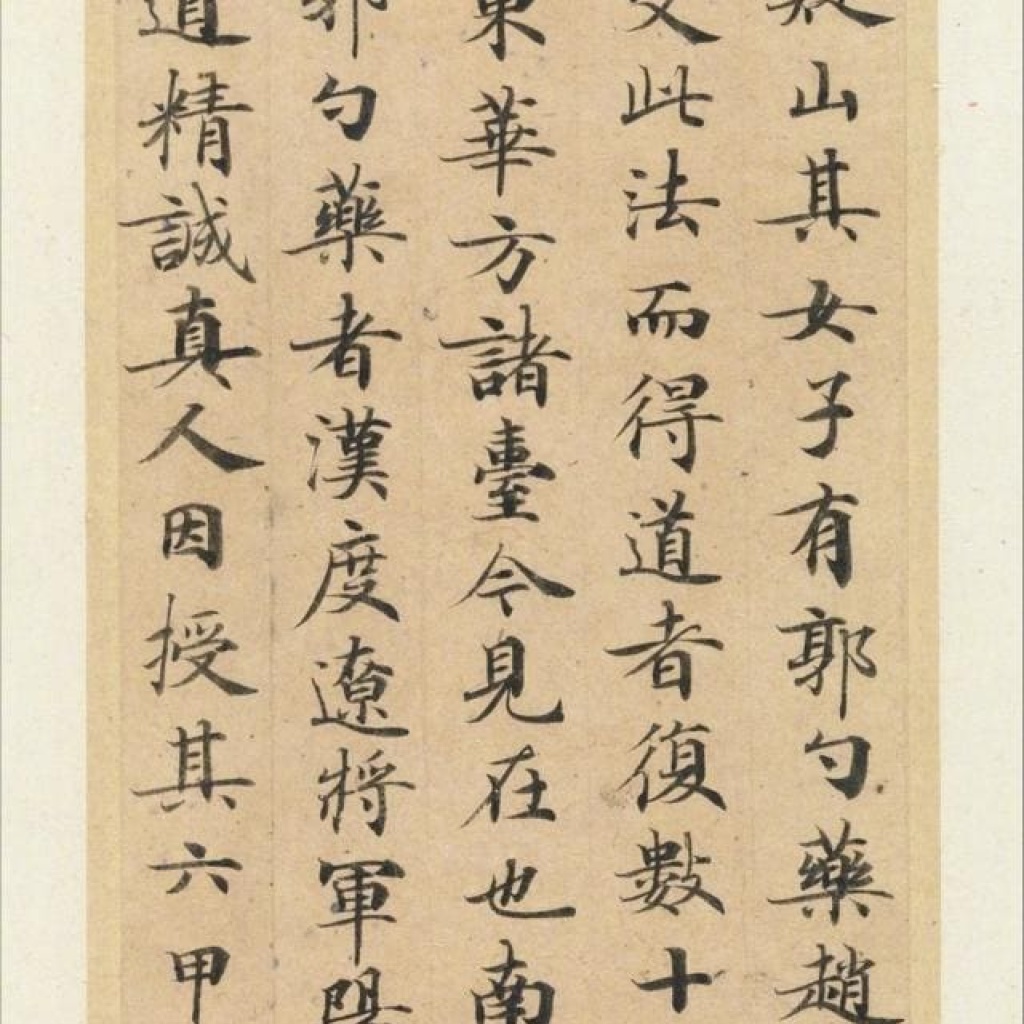 疑山其女子有郭勺藥趙
爻此法而得道者復數十
東華方諸臺今見在也南
郭勺藥者漢度遼將軍陽
道精誠真人因授其六甲